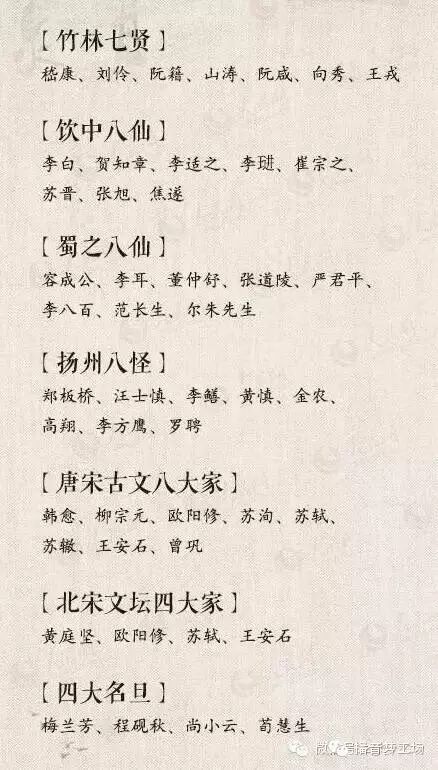 【竹林七贤】
嵇康、刘伶、阮籍、山涛、阮咸、向秀、王戎
【饮中八仙】
李白、贺知章、李适之、李琎、崔宗之、
苏晋、张旭、焦遂
【蜀之八仙】
容成公、李耳、董仲舒、张道陵、严君平、
李八百、范长生、尔朱先生
【扬州八怪】
郑板桥、汪士慎、李鱓、黄慎、金农、
高翔、李方鹰、罗聘
【唐宋古文八大家】
韩愈、柳宗元、欧阳修、苏洵、苏轼、
苏辙、王安石、曾巩
【北宋文坛四大家】
黄庭坚、欧阳修、苏轼、王安石
【四大名旦】
梅兰芳、程砚秋、尚小云、荀慧生